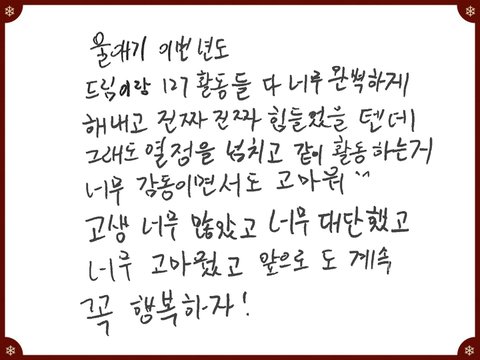 울애기 이번년도
드림이랑 127 활동들 다 너무 완벽하게
해내고 진짜 진짜 힘들었을 텐데
그래도 열정을 넘치고 같이 활동하는거
너무 감동이면서도 고마워 ^^
고생 너무 많았고 너무 대단했고
너무 고마웠고 앞으로 도 계속
꼭 행복하자!